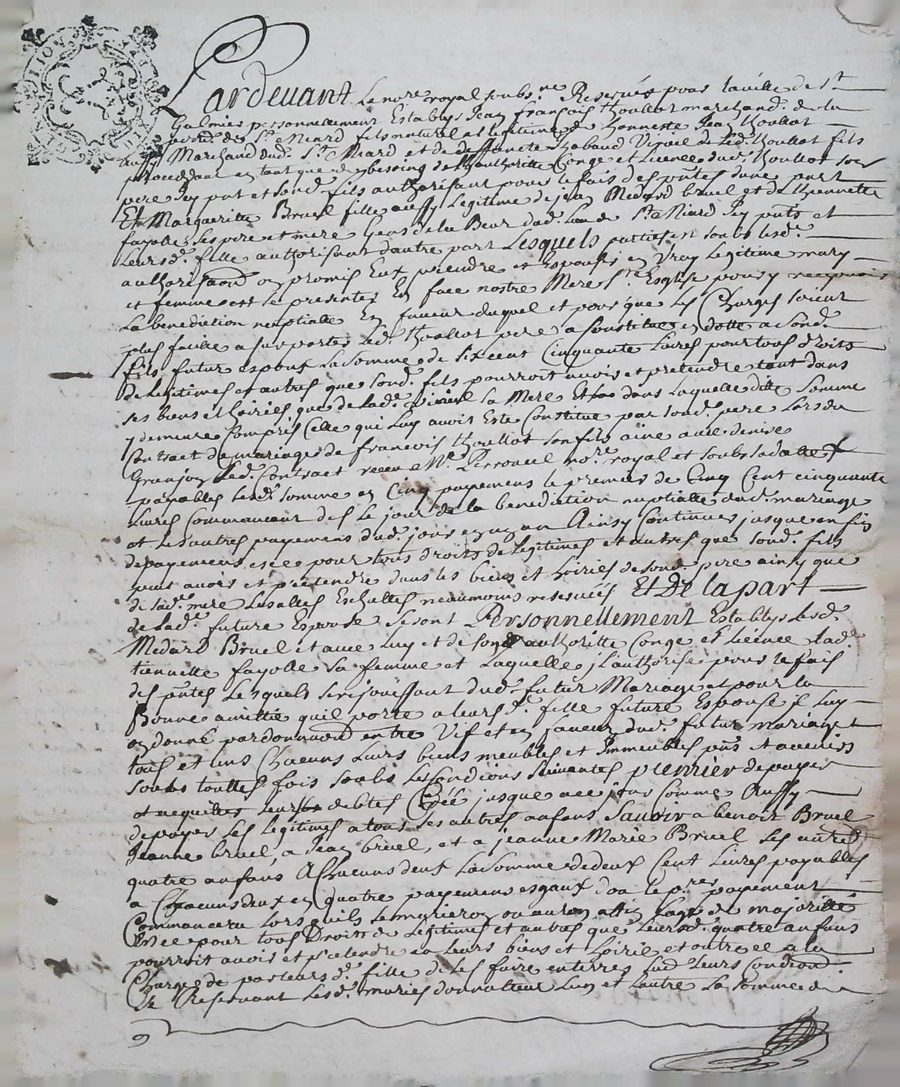 Pardevant Le no.re royal soubs.ne Reservé pour la ville de S.t
Galmier personnellement Establys Jean françois Thoullot marchand de la
parr. de S.t Niard fils naturel et legitime de honneste Jean Thoullot
aussy Marchand dud. S.t Niard et de deffuncte led. Thoullot fils
procedant en tant que de besoing de l'authoritte Conge et Licence dud. Thoullot son
pere Jcy pnt et sond. fils authorisant pour le fait des pntes dune part
Et Margueritte Bruel fille aussy Legitime de jean Medard bruel et de thiennette
fayolle ses pere et mere dud. Lieu de S.t Niard Jcy pnts et
leurd. fille authorisant dautre part Lesquels parties et soubs lesd.
authorisaon on promis Eux prendre et Espouser en Vray legitime mary
et femme et se presenter En face nostre Mere S.te Esglise pour y recepvoir
La benediction nuptialle En faveur duquel et pour que les Charges soient
plus facille a suporter led. Thoullot pere a Constitue en dotte a sond.
fils futur espoux La somme de six cent Cinquante livres pour tous droits
de legitimes et autres que sond. fils pourroit avoir et pretendre tant dans
ses biens et hoiries que de lad. sa Mere Et dans laquelle ditte somme
y demeure Compris Celle qui Luy avoit Este Constitue par sond. pere Lors du
Contract de mariage de francois Thoullot son fils aine avec denise
Granjon led. Contract receu M.e Perroneil no.re royal et soubs sa datte
payables lad. somme en Cinq payemens le premier de Cinq Cent cinquante
Livres Commancent des le jour de la benediction nuptialle dud. mariage
et les autres payemens dud. jour en un an Ainsy Continuer jusque en fin
de payemens et ce pour tous droits de legitimes et autres que sond. fils
peut avoir et pretendre dans les biens et hoiries de sond. pere ainsy que
de sad. mere Les alles Escheutes neaumoins reservés Et De la part
de lad. future Espouse se sont Personnellement Establys led.
Medard Bruel et avec luy et de son authoritte Conge et licence lad.
tiennette fayolle sa femme et laquelle il authorise pour le fait
des pntes lesquels se rejouissant dud. futur Mariage et pour la
Bonne amittie quil porte a leur d. fille future Espouse Luy
on donne par donnaon entre Vif et en faveur dud. futur mariage
tous et uns Chacuns leurs biens meubles et Jmmeubles pnts et advenirs
soubs touttes fois soubs les Condions suivantes premier de payer
et acquitter leurs debtes Crée jusque a ce jour Comme Aussy
de payer les legitimes a tous ses autres anfans Savoir a benoit Bruel
Jeanne bruel, a Jean bruel, et a jeanne Marie Bruel les autre
quatre anfans A Chacuns dent La somme de deux Cent livres payables
a Chacuns deux en quatre payemens esgaux dou le p.r payement
Commancera Lors quils se marieron ou auron attin Lage de majoritte
Et ce pour tous Droits de legitimes et autres que leursd. quatre anfans
pourroit avoir et pretendre en leurs biens et hoirie et outre ce a la
Charge de par leurs d. fille de les faire enterrer leurs Condiond
Se Reservant lesd. maries donnateur Lun et lautre La somme de